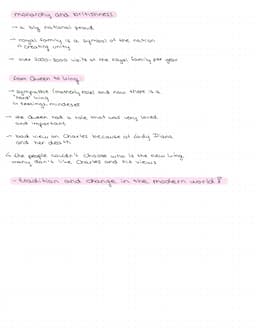 monarchy and britishness
→ a big national proud
→ royal family is a symbol of the nation
→ creating unity
→ over 2000-3000 visits of the royal family per year
from Queen to king
→ sympathie (motherly role) and now there is a
"new" king
→ feelings, mindset
→ the Queen had a role that was very loved
and important
→ bad view on Charles because of Lady Diana
and her death
↳ the people couldn't choose who is the new king,
many don't like Charles and his views
→ tradition and change in the modern world!